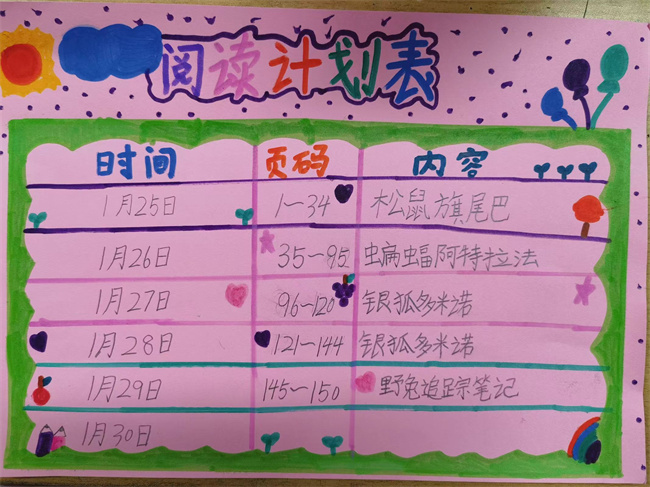 阅读计划表
时间 页码 内容
1月25日 1～34 松鼠旗尾巴
1月26日 35～95 蝙蝠阿特拉法
1月27日 96～120 银狐多米诺
1月28日 121～144 银狐多米诺
1月29日 145～150 野兔追踪笔记
1月30日